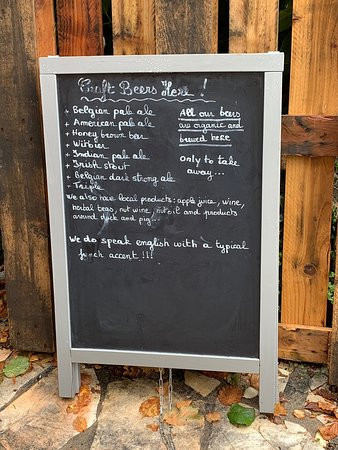 Craft Beers Here !
+ Belgian pale ale
+ American pale ale
+ Honey brown beer
+ Witbier
+ Indian pale ale
+ Irish stout
+ Belgian dark strong ale
+ Triple
All our beers
are organic and
brewed here
Only to take
away...
We also have local products: apple juice, wine,
herbal teas, nut wine, nut oil and products
around duck and pig...
We do speak english with a typical
french accent !!!